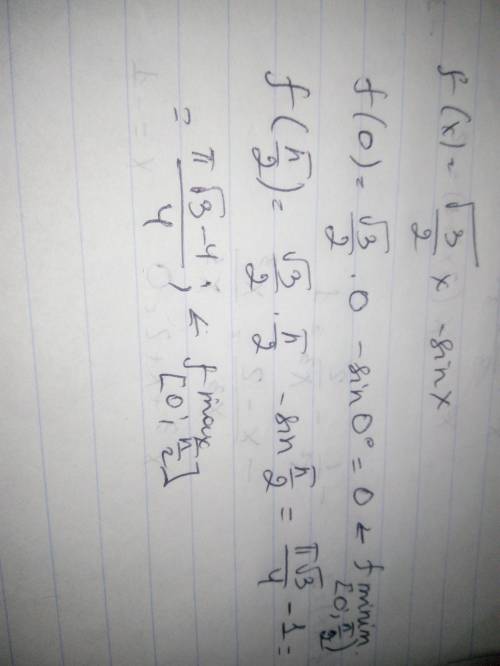 f(x) = √3/2 x - sin x
f(0) = √3/2 · 0 - sin 0° = 0 ← f minin. [0; π/2]
f(π/2) = √3/2 · π/2 - sin π/2 = π√3/4 - 1 =
= π√3-4/4 ; ← f max [0; π/2]